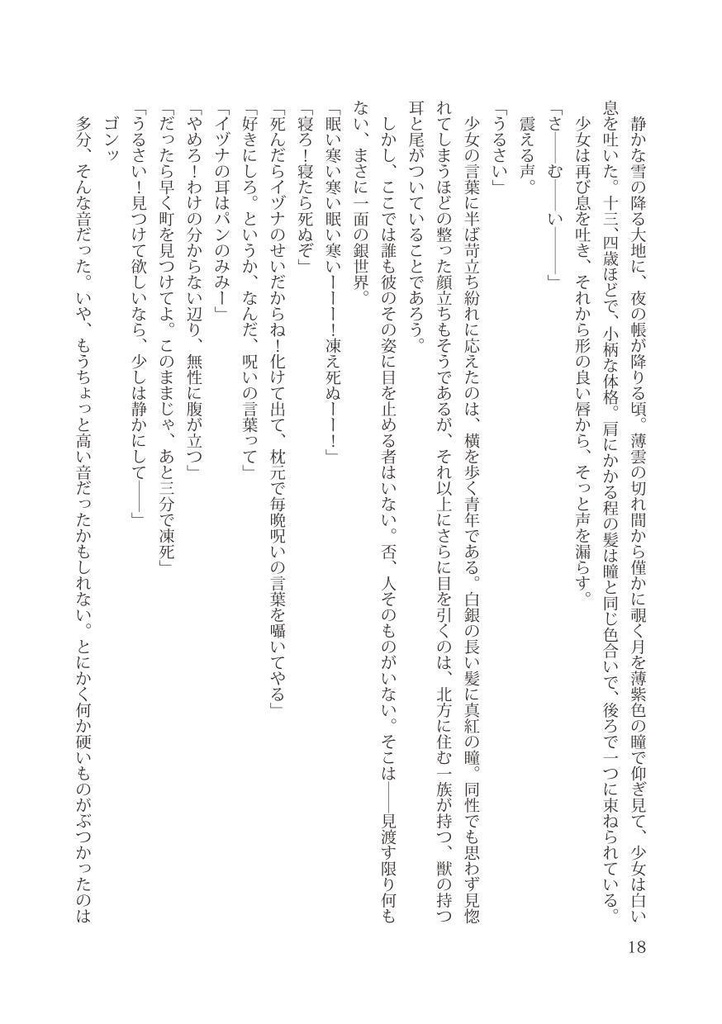 静かな雪の降る大地に、夜の帳が降りる頃。薄雲の切れ間から僅かに覗く月を薄紫色の瞳で仰ぎ見て、少女は白い
息を吐いた。十三、四歳ほどで、小柄な体格。肩にかかる程の髪は瞳と同じ色合いで、後ろで一つに束ねられている。
少女は再び息を吐き、それから形の良い唇から、そっと声を漏らす。
「さ――む――い――――」
震える声。
「うるさい」
少女の言葉に半ば苛立ち紛れに応えたのは、横を歩く青年である。白銀の長い髪に真紅の瞳。同性でも思わず見惚
れてしまうほどの整った顔立ちもそうであるが、それ以上にさらに目を引くのは、北方に住む一族が持つ、獣の持つ
耳と尾がついていることであろう。
しかし、ここでは誰も彼のその姿に目を止める者はいない。否、人そのものがいない。そこは――見渡す限り何も
ない、まさに一面の銀世界。
「眠い寒い寒い眠い寒いーーー！凍え死ぬーー！」
「寝ろ！寝たら死ぬぞ」
「死んだらイヅナのせいだからね！化けて出て、枕元で毎晩呪いの言葉を囁いてやる」
「好きにしろ。というか、なんだ、呪いの言葉って」
「イヅナの耳はパンのみみー」
「やめろ！わけの分からない辺り、無性に腹が立つ」
「だったら早く町を見つけてよ。このままじゃ、あと三分で凍死」
「うるさい！見つけて欲しいなら、少しは静かにして――」
ゴンッ
多分、そんな音だった。いや、もうちょっと高い音だったかもしれない。とにかく何か硬いものがぶつかったのは
18